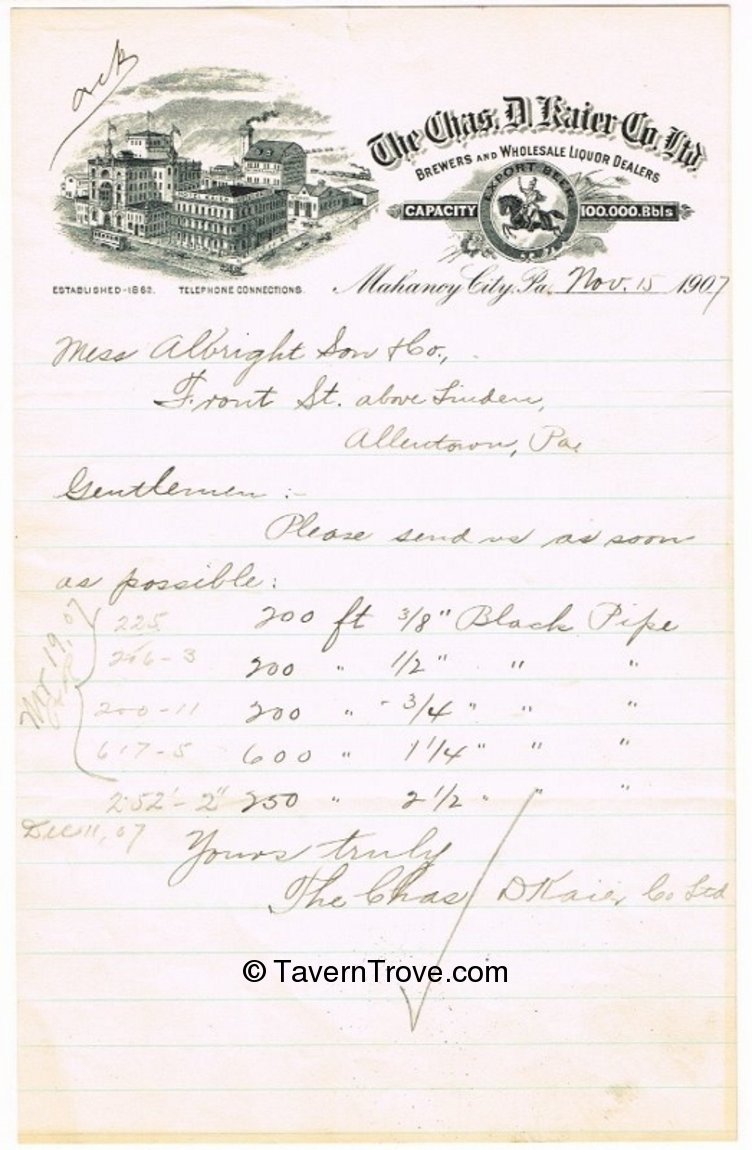 ack
The Chas. D. Kaier Co. Ltd
BREWERS AND WHOLESALE LIQUOR DEALERS
EXPORT BEER
CAPACITY 100.000.Bbls
ESTABLISHED-1862. TELEPHONE CONNECTIONS.
Mahanoy City, Pa. Nov. 15 1907
Mess Albright Son & Co.,
Front St. above Linden,
Allentown, Pa.
Gentlemen :-
Please send us as soon
as possible:
225 200 ft 3/8" Black Pipe
206-3 200 " 1/2" " "
200-11 200 " 3/4" " "
617-5 600 " 1 1/4" " "
252'-2" 250 " 2 1/2" " "
19, 07
Dec 11, 07
Yours truly
The Chas D Kaier Co Ltd
© TavernTrove.com